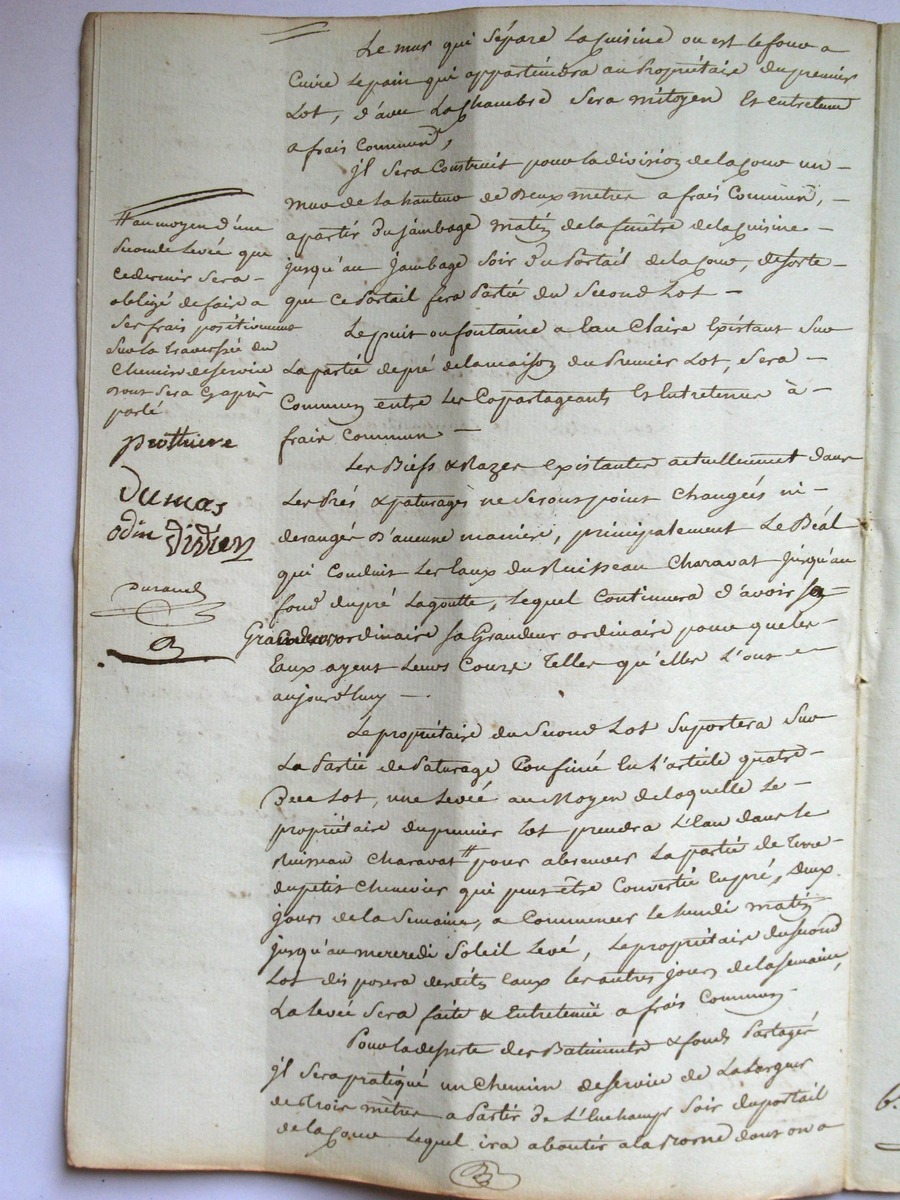 Le mur qui Sépare La Cuisine ou est le four a
Cuire Le pain qui appartiendra au Propriétaire du premier
Lot, d'avec La Chambre Sera mitoyen Et entretenu
a frais Communs,
jl Sera Construit pour la division de la Cour un
mur de la hauteur de Deux mètres a frais Communs,
a partir Du jambage matin de la fenêtre de la Cuisine
jusqu'au Jambage Soir Du Portail de la Cour, de sorte
que Ce Portail fera Partie du Second Lot
Le puit ou fontaine a Eau Claire Existant Sur
La partie de pré de la maison du Premier Lot, Sera
Commun entre Les Copartageants Et Entretenue à
frais Commun
Les Biefs & Razes existantes actuellement dans
Les Prés & paturages ne Seront point Changées ni
derangés D'aucune manière, principalement Le Béal
qui Conduit Les Eaux du Ruisseau Charavat jusqu'au
fond du pré Lagoutte, Lequel Continuera d'avoir sa
Grandeur ordinaire sa Grandeur ordinaire pour que les
Eaux ayent Leurs Cours Telles qu'elles L'ont
aujourd'huy
Le propriétaire du Second Lot Suportera Sur
La Partie de Paturage Confiné En L'article quatre
Dece Lot, une Levée au Moyen de laquelle Le
propriétaire du premier Lot prendra L'Eau dans le
Ruisseau Charavat # pour abreuver La partie de Terre
du petit Chenevier qui peut être Convertie En pré, Deux
jours de la Semaine, a Commencer le Lundi matin
jusqu'au mercredi Soleil Levé, Le propriétaire du second
Lot disposera desdites Eaux les autres jours de la Semaine,
La Levée Sera faite & Entretenue a frais Communs
Pour la desserte des Batiments & fonds Partagés
jl Sera pratiqué un Chemin de Service de La Largeur
de trois mètres a Partir De L'Enchamp Soir du portail
de la Cour Lequel ira aboutir a la Borne dont on a
# au moyen d'une
Seconde Levée que
ce dernier Sera
obligé de faire a
Ses frais
Sur la traversée du
Chemin de Service
dont Sera Cy après
parlé
prothiere
Dumas
odin Didien
Durand